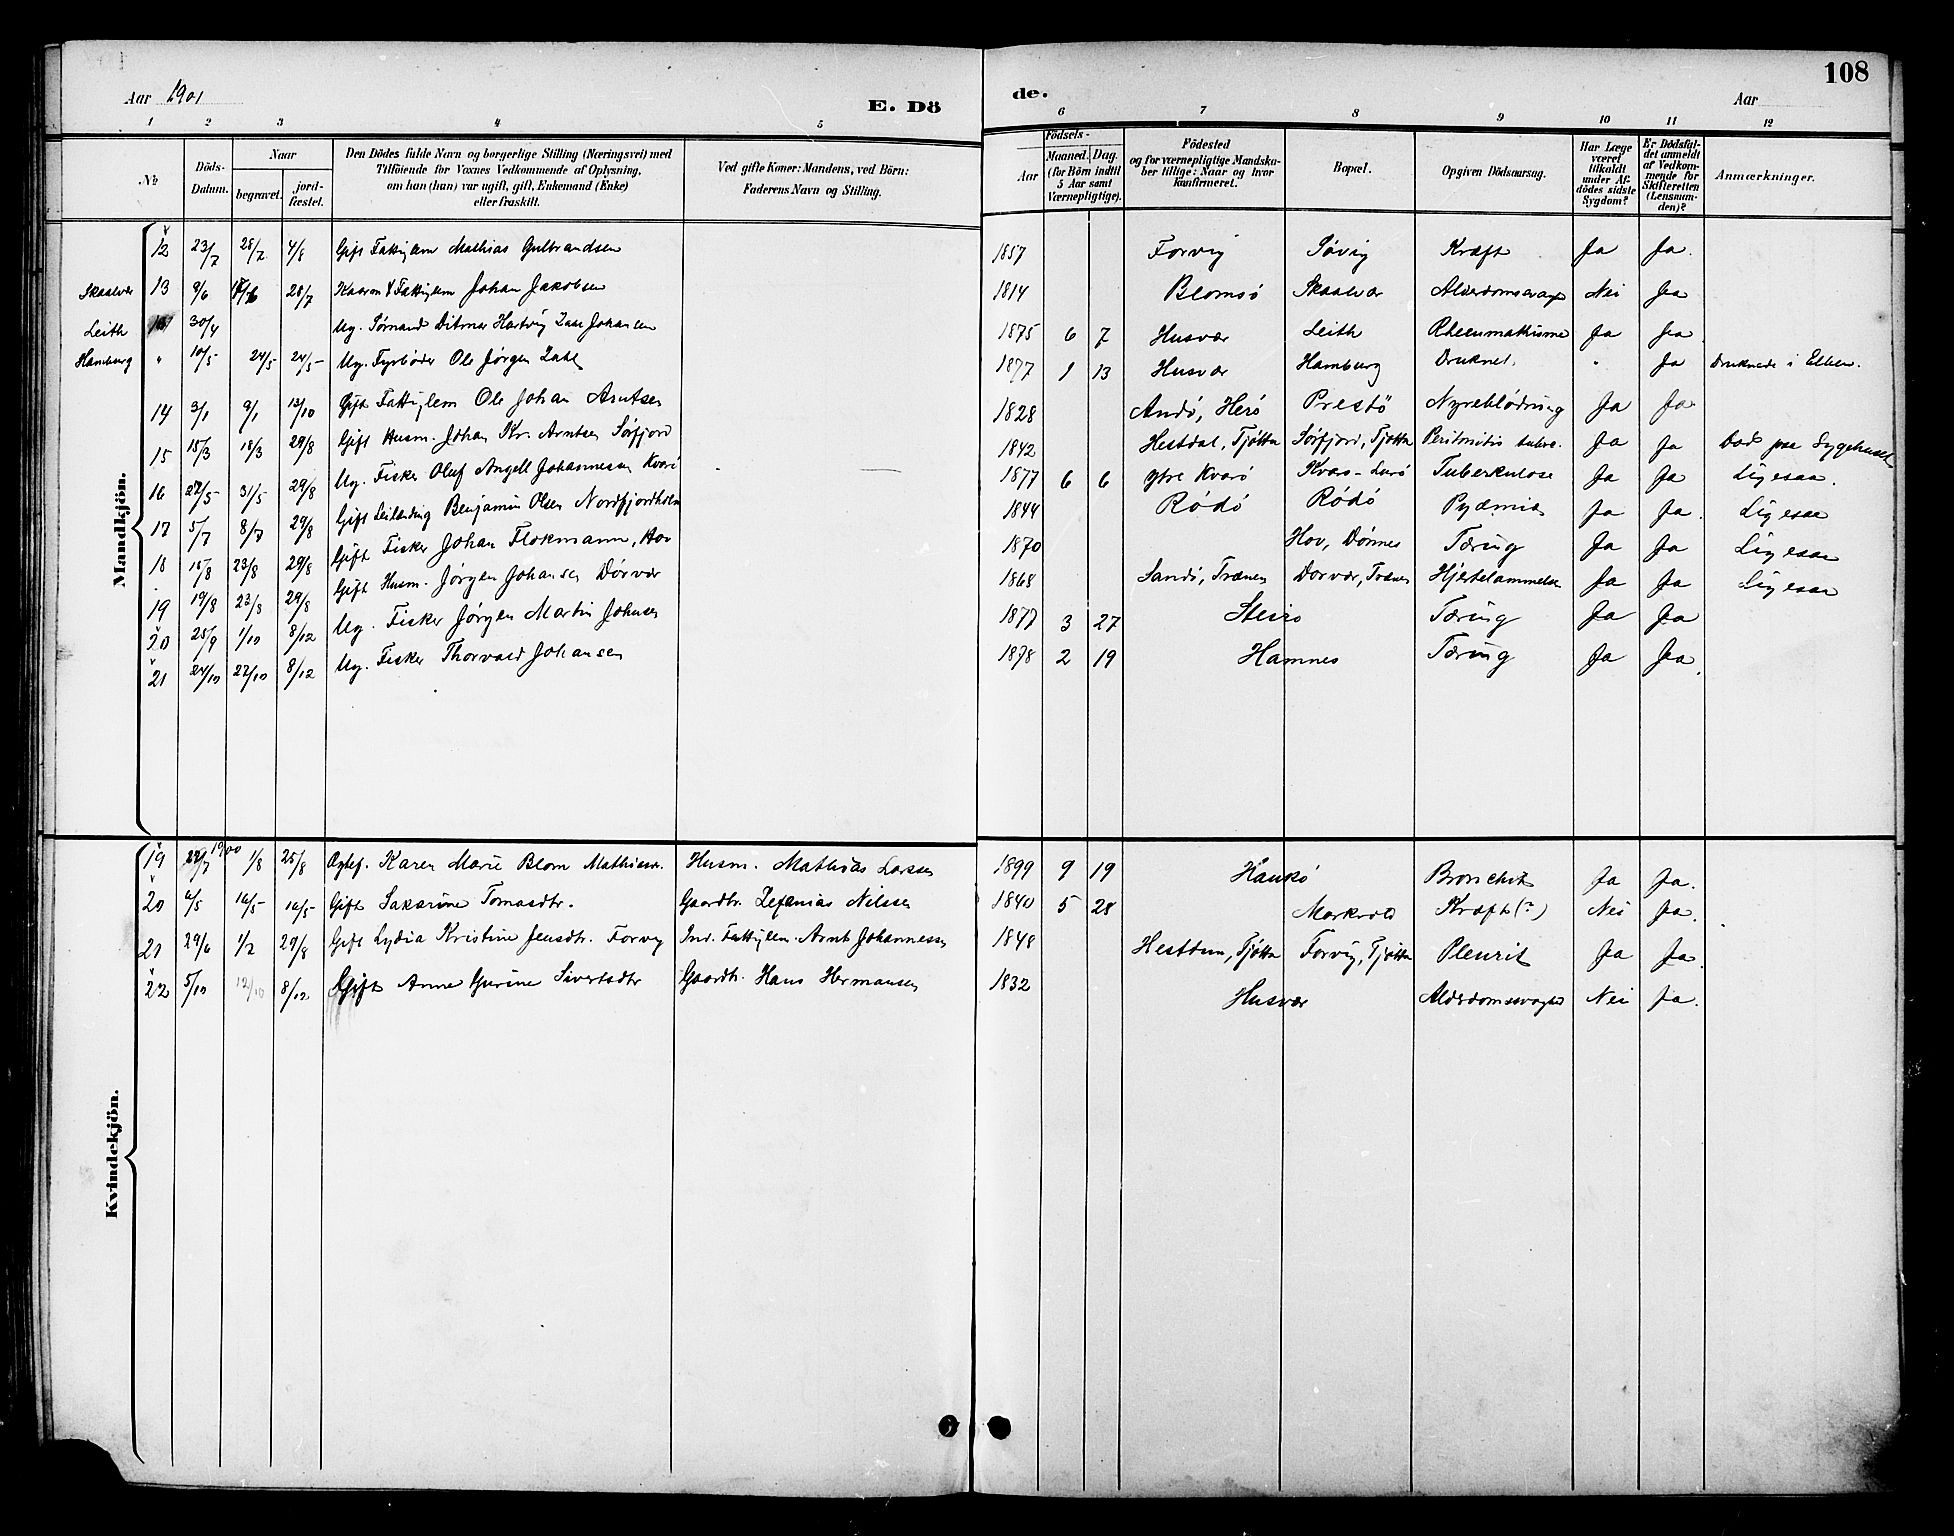 108
Aar 1901 E. Dö
de. Aar
1 2 3 4 5 6 7 8 9 10 11 12
No
Döds-Datum.
Naar
begravet.
jord-fæstet.
Den Dödes fulde Navn og borgerlige Stilling (Næringsvei) med
Tilföiende for Voxnes Vedkommende af Oplysning,
om han (hun) var ugift, gift, Enkemand (Enke)
eller fraskilt.
Ved gifte Koner: Mandens, ved Börn:
Faderens Navn og Stilling.
Födsels-
Aar
Maaned. Dag.
(for Börn indtil
5 Aar samt
Værnepligtige).
Födested
og for værnepligtige Mandska-
ber tillige: Naar og hvor
konfirmeret.
Bopæl.
Opgiven Dödsaarsag.
Har Læge
været
tilkaldt
under Af-
dödes sidste
Sygdom?
Er Dödsfal-
det anmeldt
af Vedkom-
mende for
Skifteretten
(Lensman-
den)?
Anmærkninger.
Mandkjön.
12 23/7 28/7 4/8 Gift Fattiglem Mathias Gulbrandsen 1857 Forvig Søvig Kræft Ja Ja.
Skaalvær 13 9/6 28/7 Fattiglem Johan Jakobsen 1814 Blomsö Skaalvær Nei Ja
Leith 30/4 Ug. Sømand Ditmar Hartvig Zahl Johansen 1875 6 7 Husvær Leith Rheumatisme Ja Ja
Hamburg " 10/5 24/5 24/5 Ug. Fyrbøder Ole Jørgen Zahl 1877 1 13 Husvær Hamburg Druknet. " Ja Druknede i Elben.
14 3/1 9/1 13/10 Gift Fattiglem Ole Johan Arntsen 1828 Andö, Herö Prestö Nyreblødning Ja Ja
15 15/3 18/3 29/8 Gift Husm. Johan Kr. Arntsen Sørfjord 1842 Hestdal, Tjøtta Sørfjord, Tjøtta Peritonitis Ja Ja Død paa Sygehuset
16 27/5 31/5 29/8 Ug. Fisker Oluf Angell Johannessen Kvarö 1877 6 6 ytre Kvarö Kvarö-Lurö Tuberkulose Ja Ja Ligesaa.
17 5/7 8/7 29/8 Gift Leilænding Benjamin Olsen Nordfjordholm 1844 Rödö Rödö Pyæmia Ja Ja. Ligesaa
18 18/8 23/8 29/8 Gift Fisker Johan Flokmann, Hov 1870 Hov, Dønnes Tæring Ja Ja Ligesaa
19 19/8 23/8 29/8 Gift Husm. Jørgen Johansen Dörvær 1868 Sandö, Trænen Dorvær, Trænen Hjertelammelse Ja Ja Ligesaa
20 25/9 1/10 8/12 Ug. Fisker Jørgen Martin Johnsen 1877 3 27 Tæring Ja Ja
21 24/10 27/10 8/12 Ug. Fisker Thorvald Johansen 1878 2 19 Hamnes Tæring Ja Ja.
Kvindekjön.
19 27/7 1900 1/8 25/8 Karen Marie Blom Mathiasen. Husm. Mathias Larsen 1899 9 19 Haukö Bronchit Ja Ja.
20 4/5 16/5 16/5 Gift Sakarine Tomasdtr. Gaardbr. Zefanias Nilssen 1840 5 28 Kræft (?) Nei Ja.
21 29/6 1/7 29/8 Gift Lydia Kristine Jensdtr. Forvig Ind. Fattiglem. Arnt Johannessen 1848 Hestdun, Tjøtta Forvig, Tjøtta Pleurit Ja Ja.
22 5/10 12/10 8/12 Gift Anne Gurine Sivertsdtr Gaardbr. Hans Hermansen 1832 Husvær Alderdomssvaghed Nei Ja.